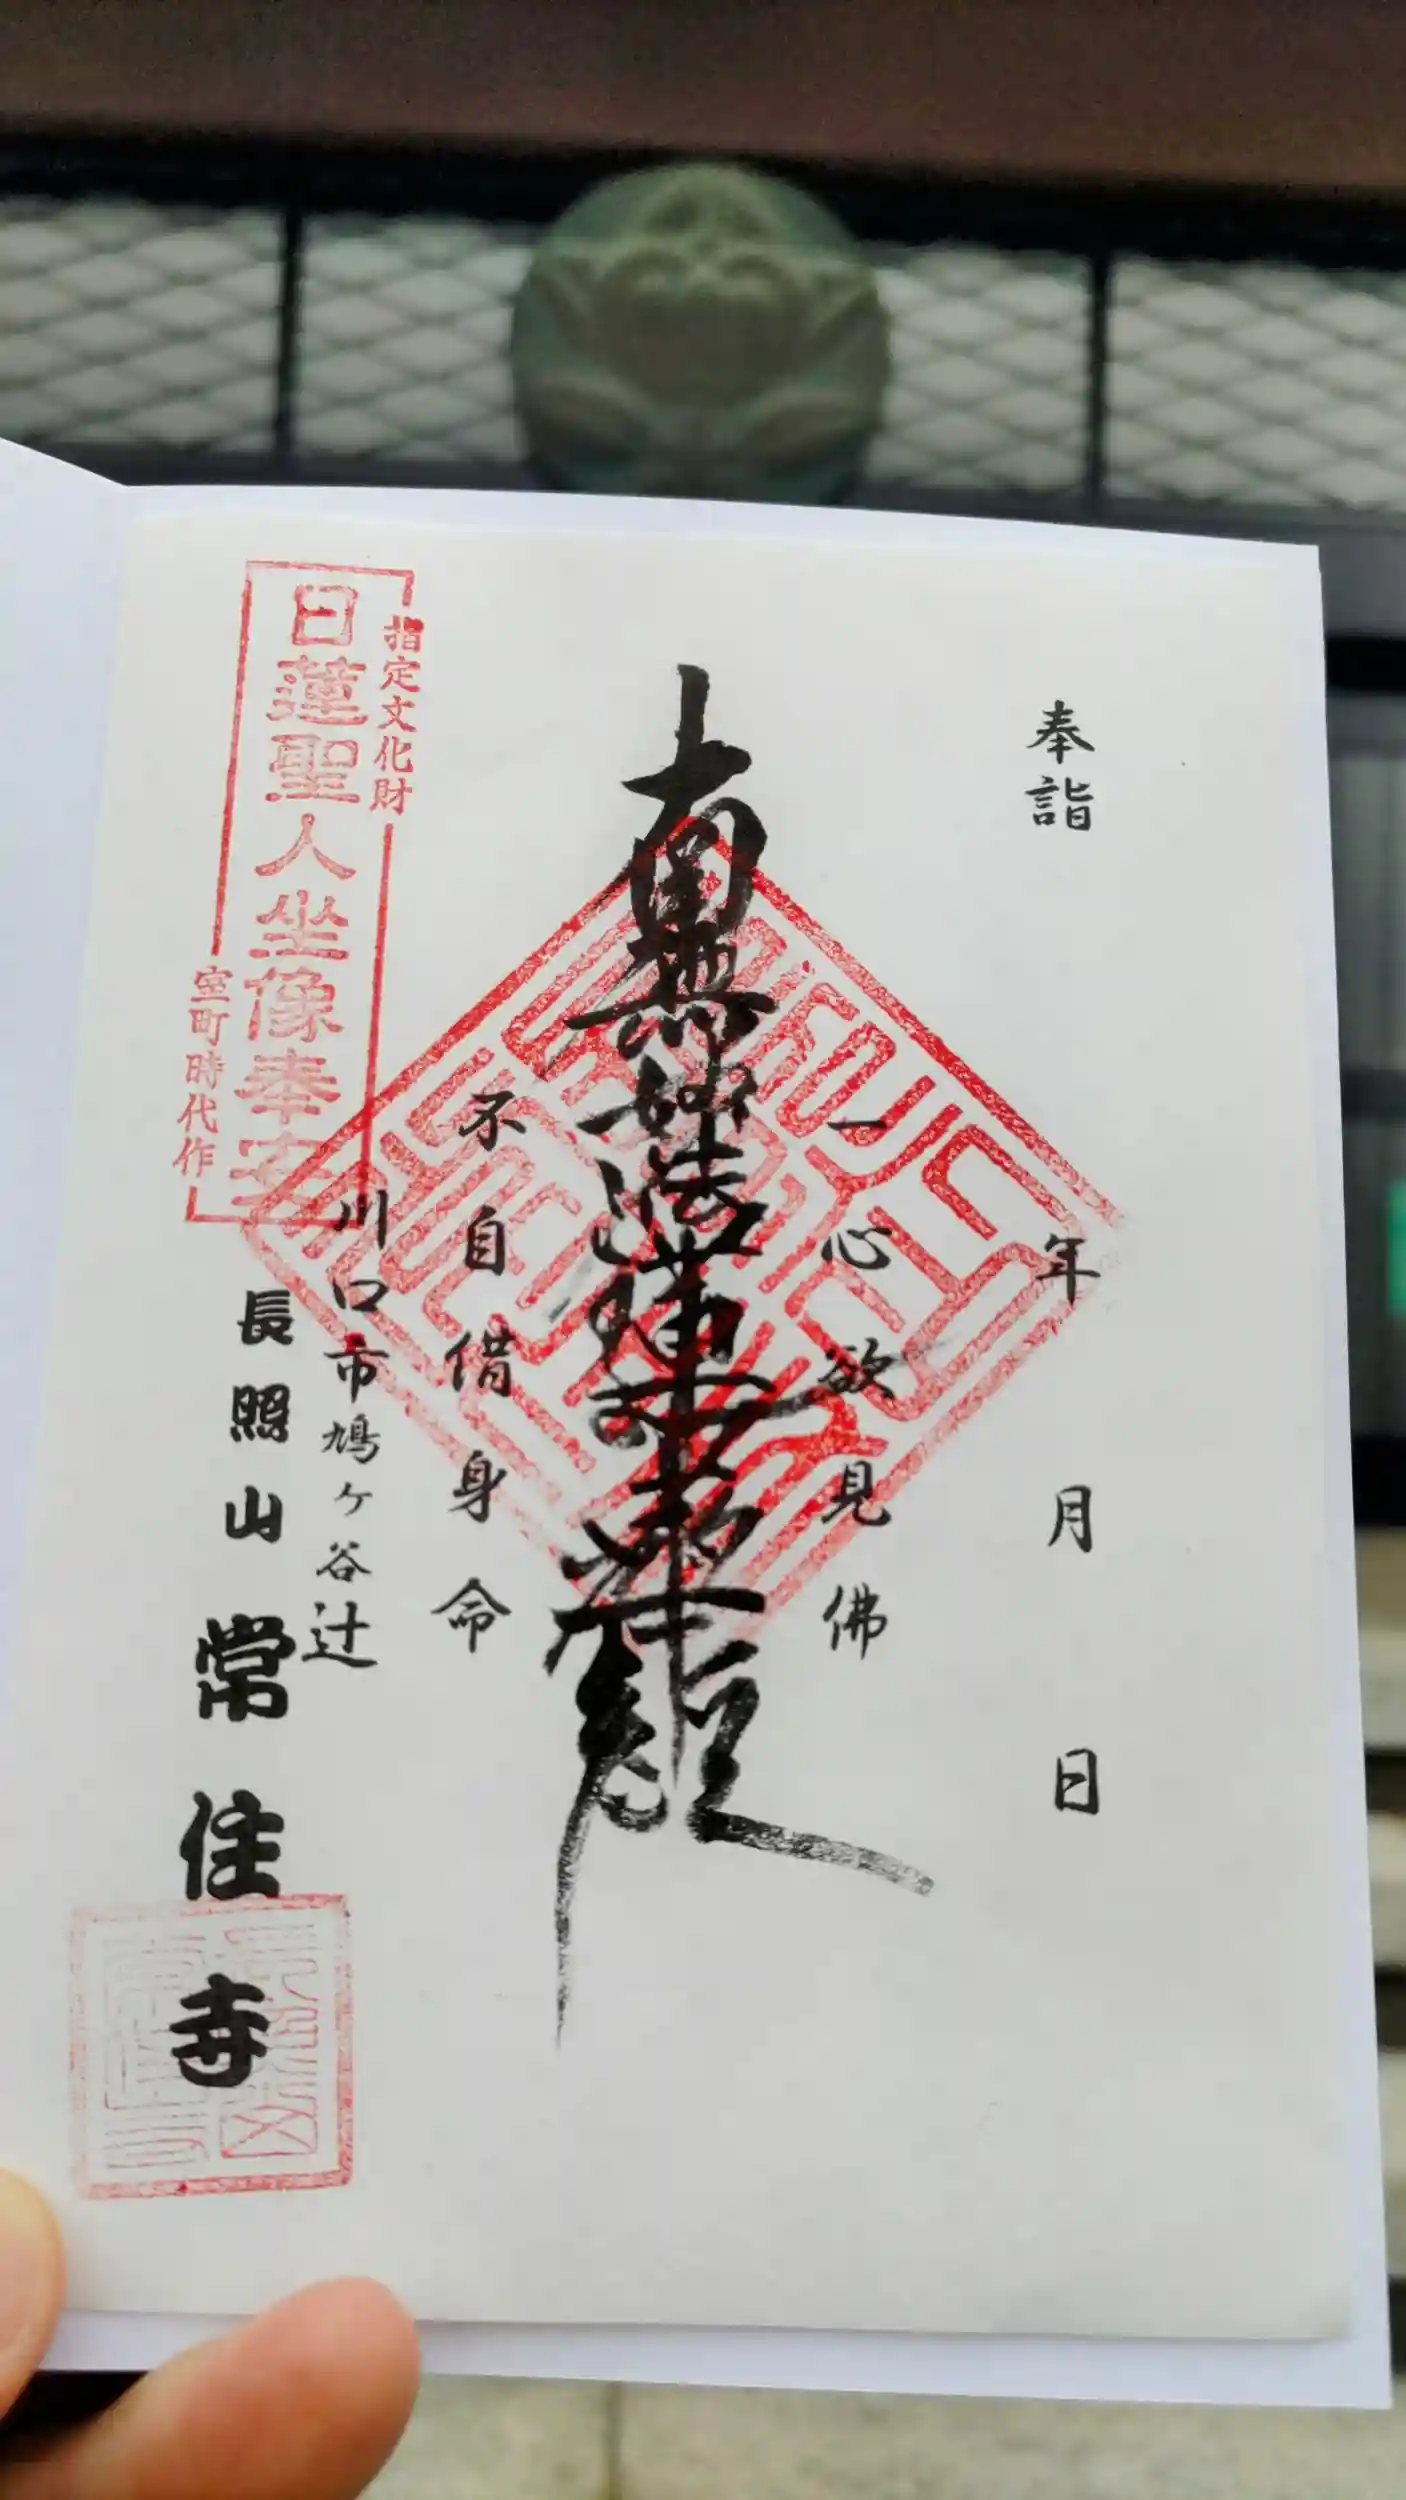 奉詣
年 月 日
一心欲見佛
南無妙法蓮華経
不自借身命
指定文化財
日蓮聖人坐像奉安
室町時代作
川口市鳩ヶ谷辻
長照山 常住寺